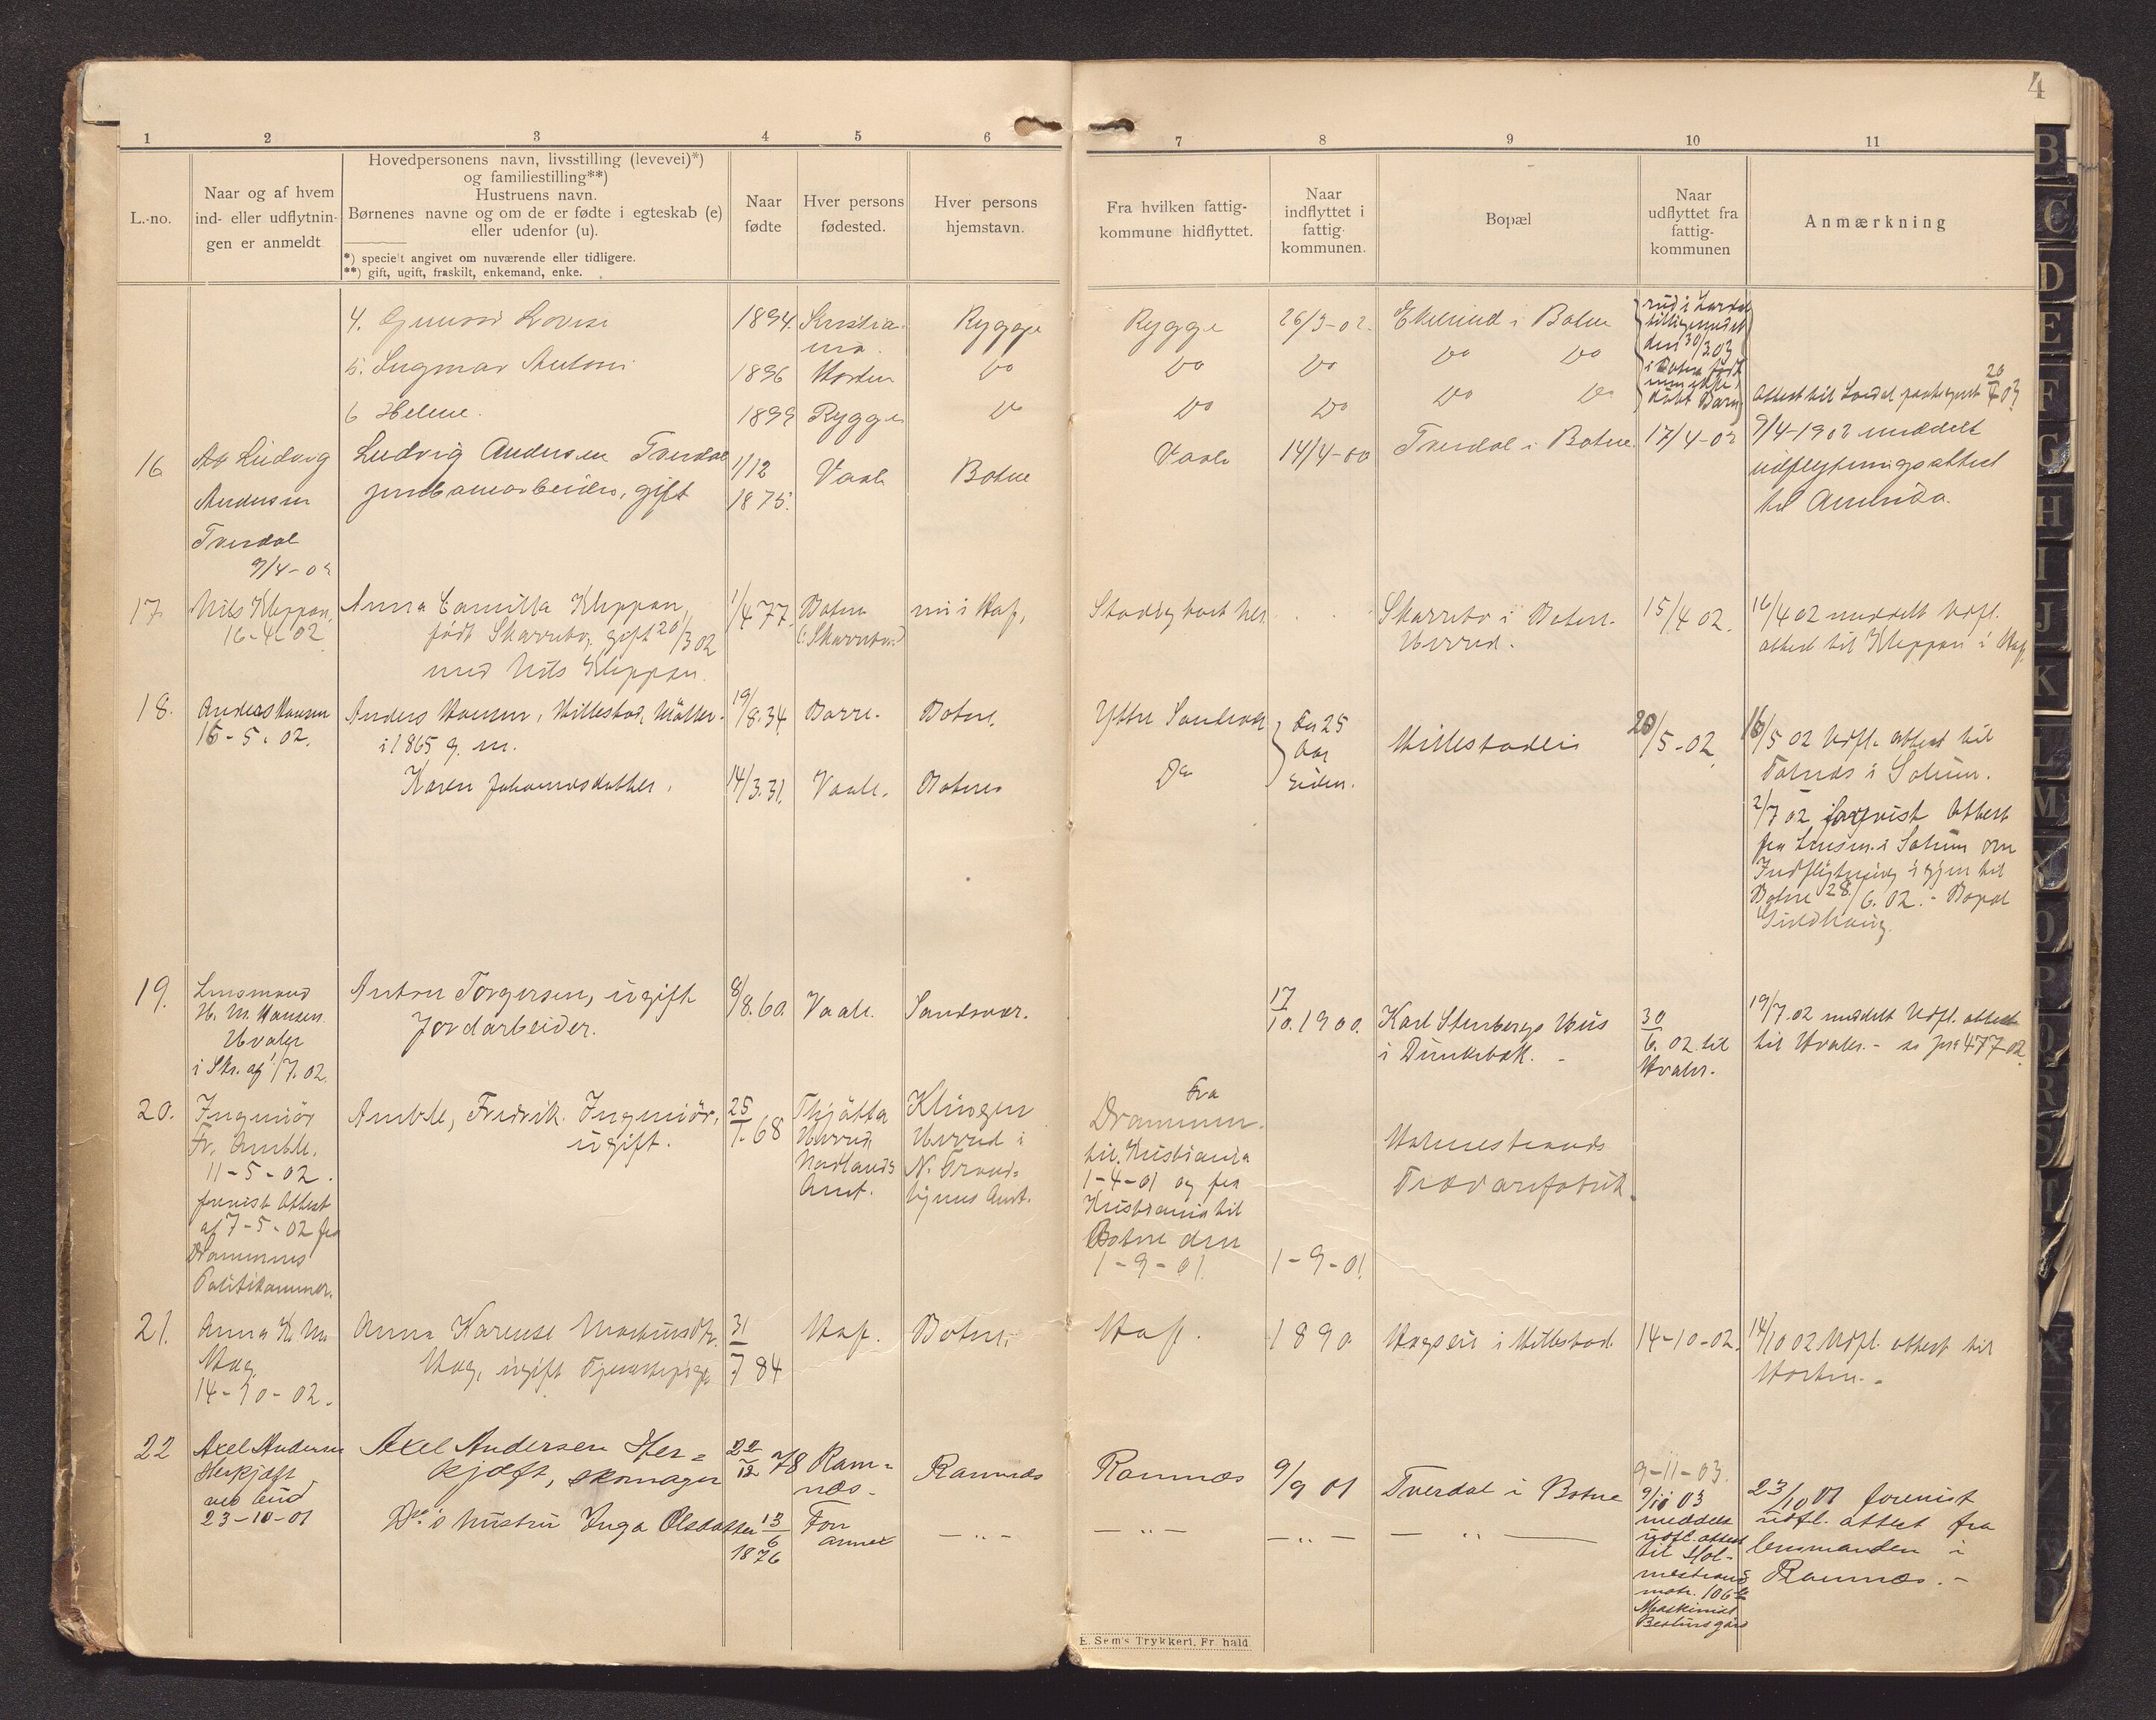 4
1 2 3 4 5 6 7 8 9 10 11
L.-no.
Naar og af hvem
ind- eller udflytnin-
gen er anmeldt
Hovedpersonens navn, livsstilling (levevei)*)
og familiestilling**)
Hustruens navn.
Børnenes navne og om de er fødte i egteskab (e)
eller udenfor (u).
*) specielt angivet om nuværende eller tidligere.
**) gift, ugift, fraskilt, enkemand, enke.
Naar
fødte
Hver persons
fødested.
Hver persons
hjemstavn.
Fra hvilken fattig-
kommune hidflyttet.
Naar
indflyttet i
fattig-
kommunen.
Bopæl
Naar
udflyttet fra
fattig-
kommunen
Anmærkning
4. Lovise
1894. Kristia-
nia.
Rygge
Rygge
26/3-02.
Ekerud i Botne
5. Ingmar Antoni
1896 Horten Do
Do Do Do Do
6 Helene.
1899 Rygge Do
Do Do Do Do
den 30/3 03
i Botne født
Attest til Lardal 20/4 03
16
Av Ludvig
Andersen
Tverdal
9/4-02
Ludvig Andersen Tverdal
jernbanearbeider, gift
1/12
1875.
Vaale
Botne
Vaale
14/4-00
Tverdal i Botne.
17/4-02
9/4-1902 meddelt
udflytningsattest
til Amerika.
17.
Nils Kleppan,
16-4-02.
Anna Camilla Kleppan,
født Skarrebo, gift 20/3 02
med Nils Kleppan.
1/4 77.
Botne
(: Skarrebo :)
nu i Hof,
Stadig boet her.
Skarrebo i Botne
Herred.
15/4 02.
16/4 02 meddelt Udfl.
attest til Kleppan i Hof.
18.
Anders Hansen
16-5-02.
Anders Hansen, Hillestad, Møller.
i 1865 g. m.
Karen Johannesdatter.
19/8.34.
14/3.31.
Borre.
Vaale.
Botne.
Botne
Ytre Sandsvær
Do
For 25
Aar
siden.
Hillestadeie
20/5-02.
16/5 02 Udfl. attest til
i Solum.
2/7 02 forevist Attest
fra Lensm. i Solum om
Indflytning igjen til
Botne 28/6. 02. - Bopæl
19.
Lensmand
H. M. Hansen
Hvaler
i Skr. af 1/7. 02.
Anton Torgersen, ugift
Jordarbeider.
8/8.60.
Vaale.
Sandsvær.
17/10.1900.
Karl Stenbergs Hus
i Dunkebæk. -
30/6. 02 til
Hvaler.
19/7.02 meddelt Udfl. attest
til Hvaler. - se jno 477 02.
20.
Ingeniør
Fr. Amble.
11-5-02.
forevist Attest
af 7-5-02 fra
Drammens
Politikammer.
Amble, Fredrik. Ingeniør,
ugift.
25/1. 68
Thjøtta
Herred,
Nordlands
Amt.
Klingen
Herred i
N. Trond-
hjems Amt.
Fra
Drammen.
til Kristiania
1-4-01 og fra
Kristiania til
Botne den
1-9-01.
1-9-01.
Holmestrands
Trævarefabrik.
21.
Anna K. M.
Hag.
14-10-02.
Anna Karense Mathisdtr.
Hag, ugift Tjenestepige
31/7 84
Hof.
Botne.
Hof.
1890
Hagseie i Hillestad.
14-10-02.
14/10 02 Udfl. attest til
Horten. -
22
Axel Andersen
Herkjæft
ved bud
23-10-01
Axel Andersen Her=
kjæft, skomager
Do's hustru Inga Olsdatter
22/12 78
13/6
1876
Ram=
næs.
Fon
annex
Ramnæs
- „ -
Ramnæs
- „ -
9/9 01
- „ -
Tverdal i Botne
- „ -
9-11-03.
9/11 03
meddelt
udfl. attest
til Hol-
mestrand
matr. 106
Maskinist
Bentürsgård
23/10 01 forevist
udfl. attest fra
lensmanden i
Ramnæs. -
E. Sem's Trykkeri, Fr. hald.
B
C
D
E
F
G
H
I
J
K
L
M
O
P
Q
R
S
T